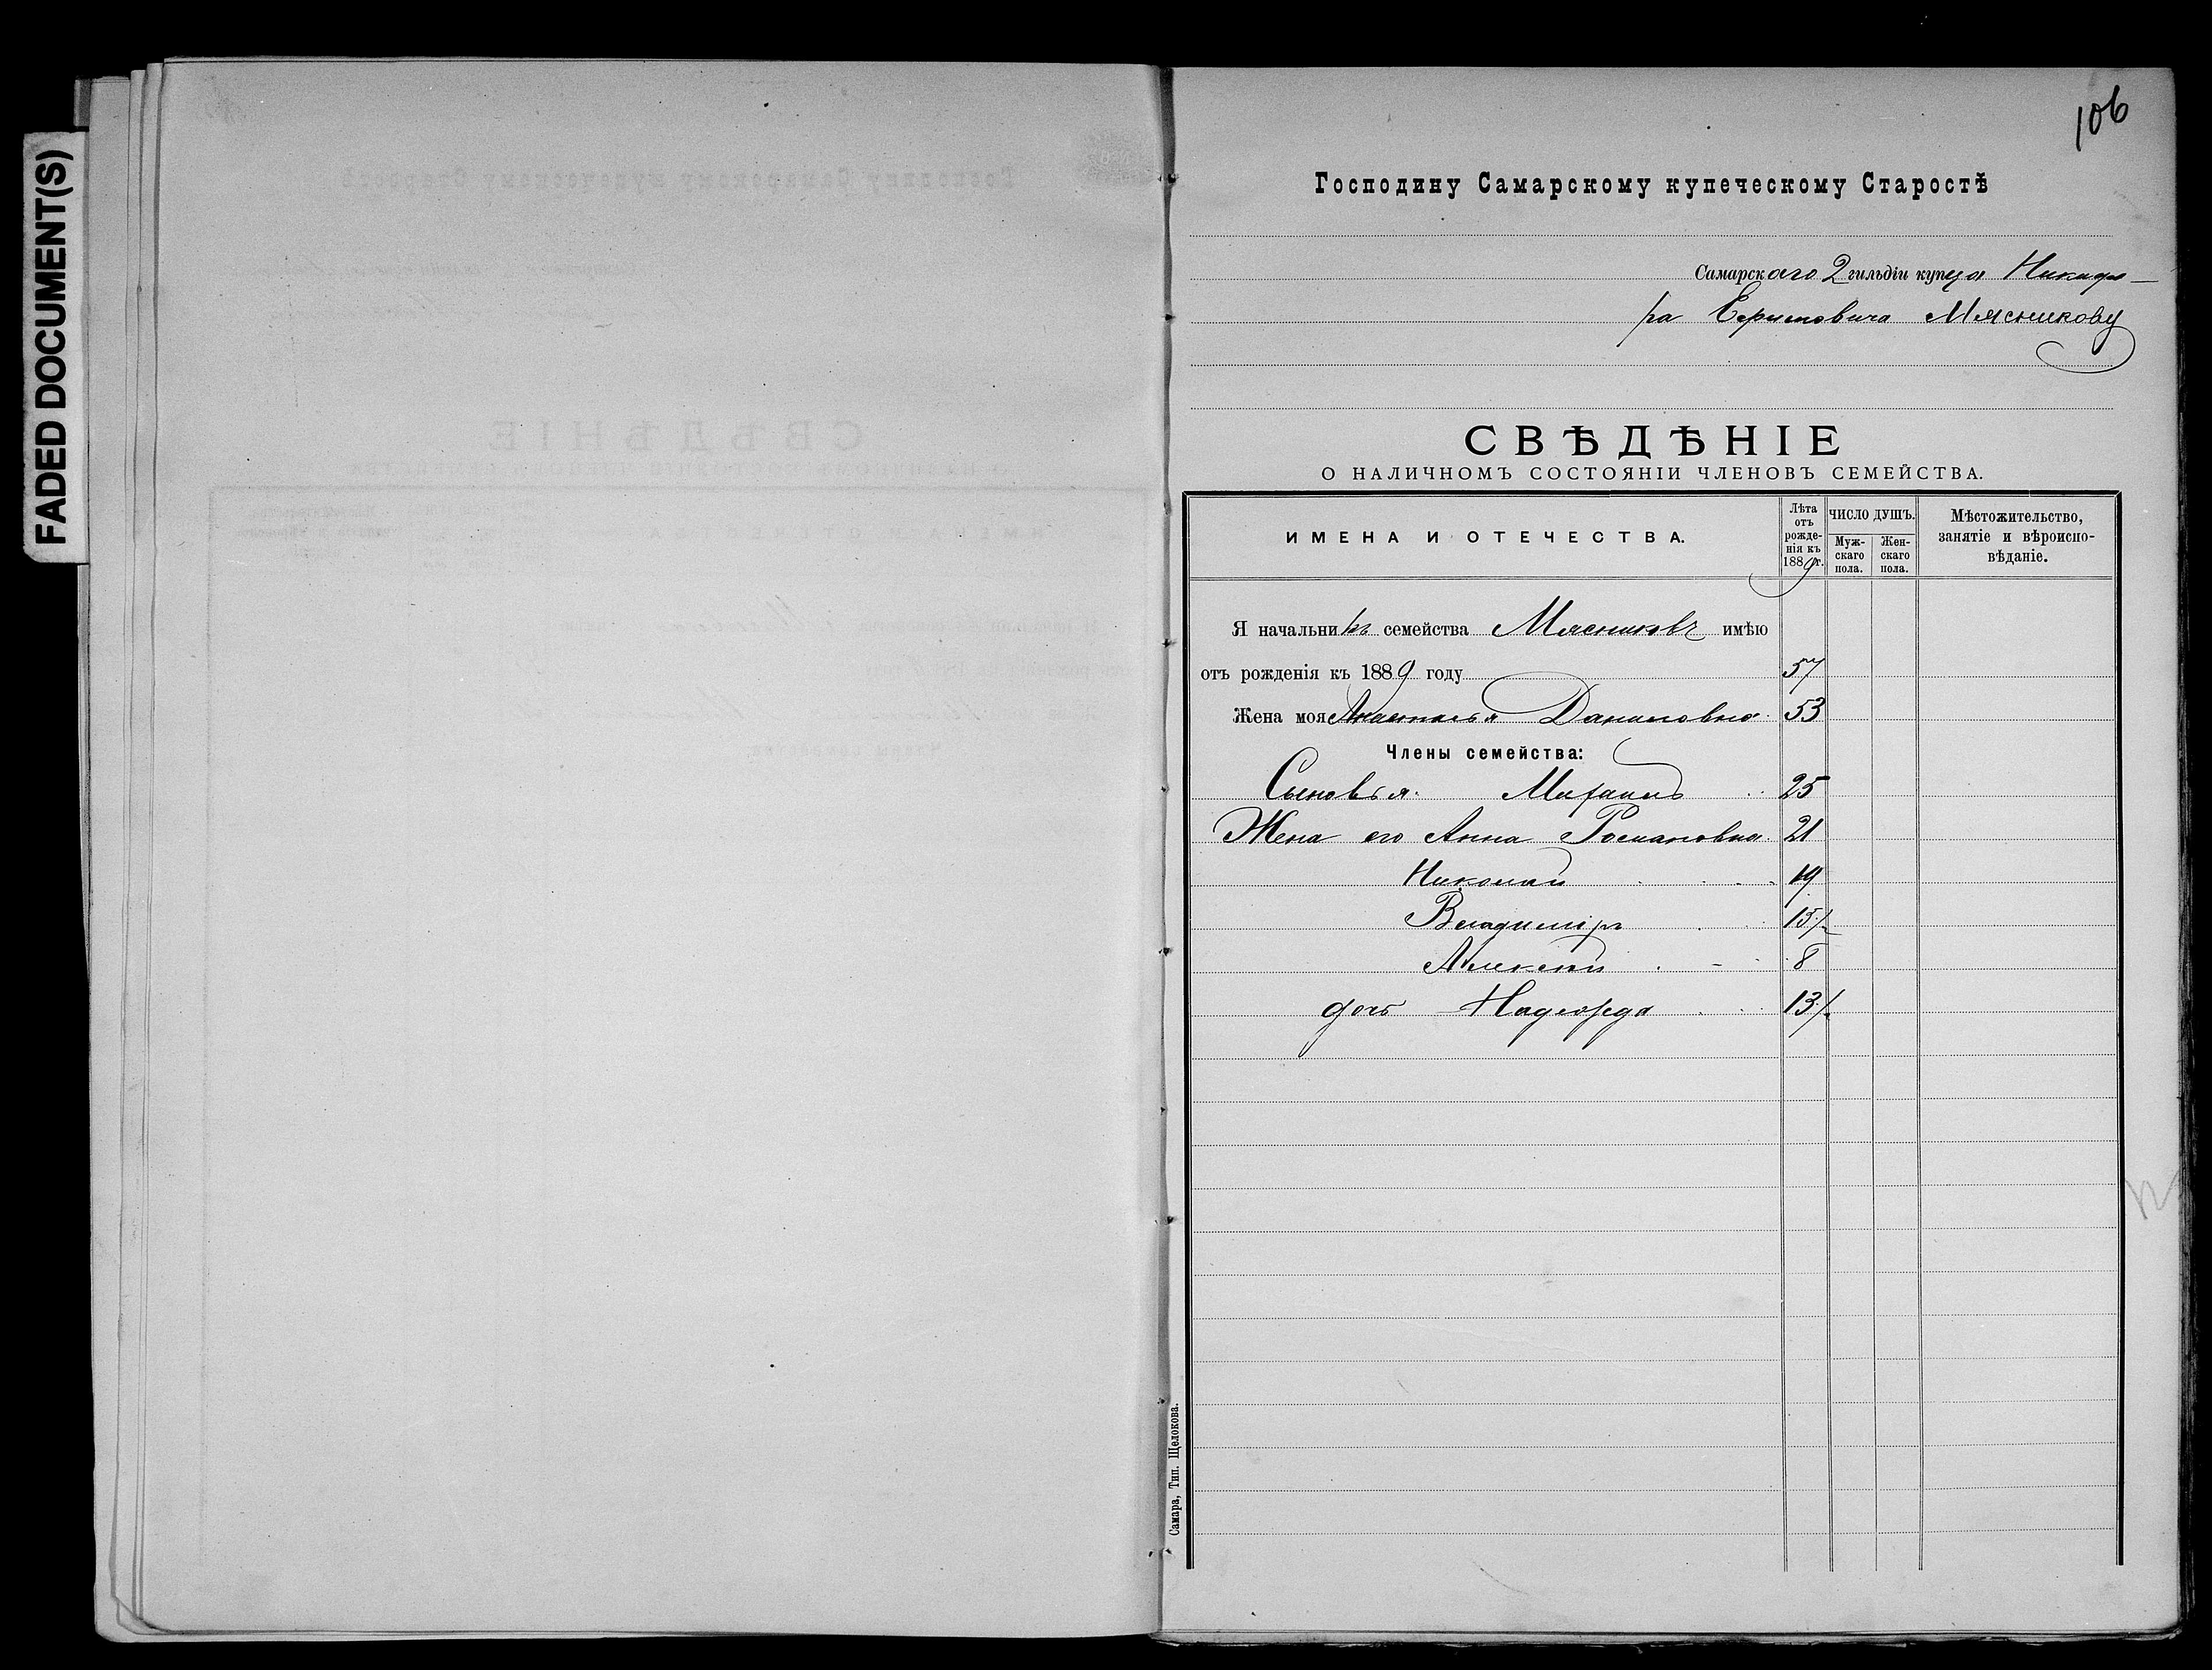 FADED DOCUMENT(S)
106
Господину Самарскому купеческому Старостѣ
Самарскаго 2 гильдіи купца Никифо-
ра Ефимовича Мясникову
СВѢДѢНІЕ
О НАЛИЧНОМЪ СОСТОЯНІИ ЧЛЕНОВЪ СЕМЕЙСТВА.
ИМЕНА И ОТЕЧЕСТВА.
Лѣта отъ рожде-нія къ 1889 г.
ЧИСЛО ДУШЪ.
Муж-скаго пола.
Жен-скаго пола.
Мѣстожительство, занятіе и вѣроиспо-вѣданіе.
Я начальникъ семейства Мясниковъ имѣю
отъ рожденія къ 1889 году 57
Жена моя Анастасья Даниловна 53
Члены семейства:
Сыновья Михаилъ 25
Жена его Анна Романовна 21
Николай 19
Владиміръ 15 1/2
Алексѣй 8
дочь Надежда 13 1/2
Самара, Тип. Щелокова.